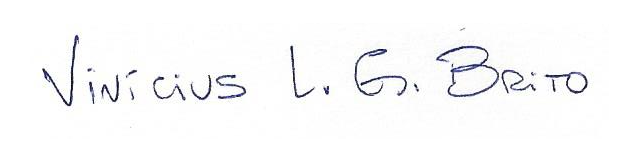 Vinícius L. G. Brito